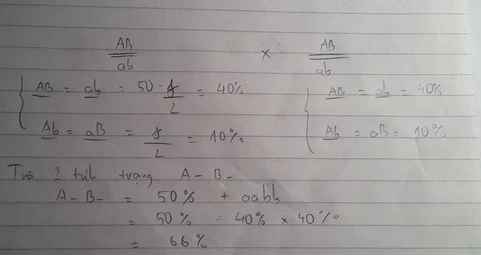 AB AB
ab × ab
AB = ab = 50 - f/2 = 40% AB = ab = 40%
Ab = aB = f/2 = 10% Ab = aB = 10%
2 tính trạng A - B -
A - B - = 50% + aabb
= 50% = 40% × 40%
= 66%